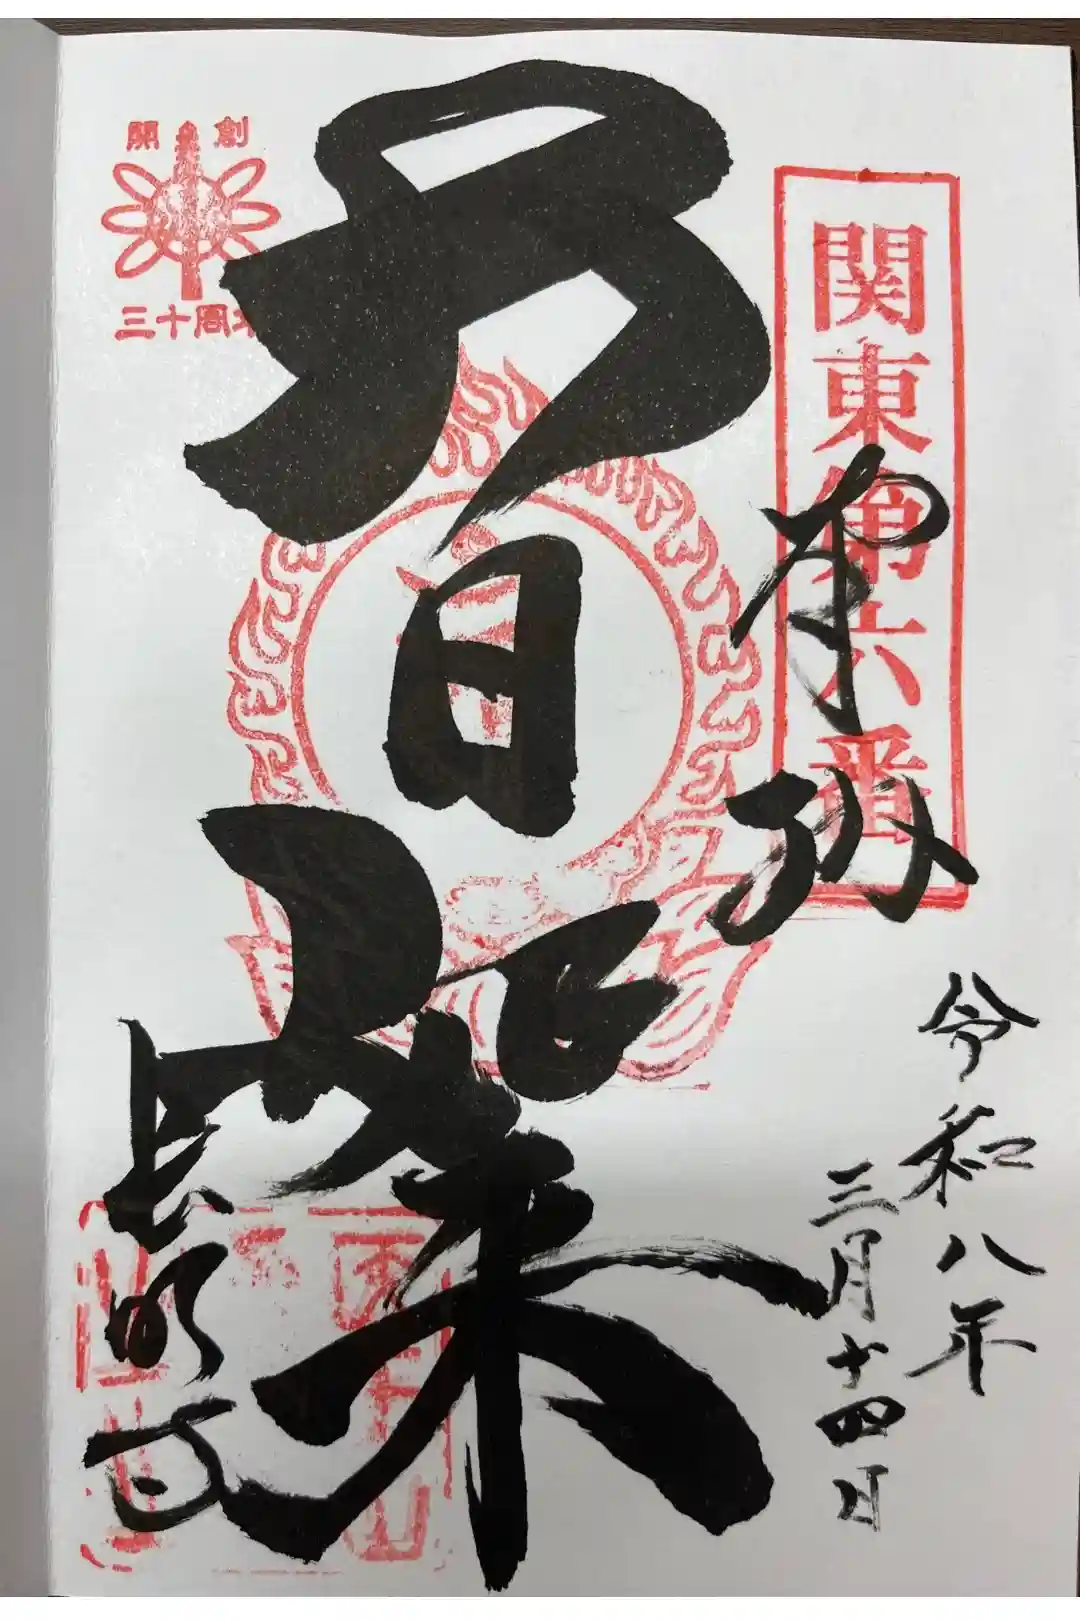 関東第六番
奉拝
令和八年
三月十四日
大日如来
開創
三十周年
長明寺